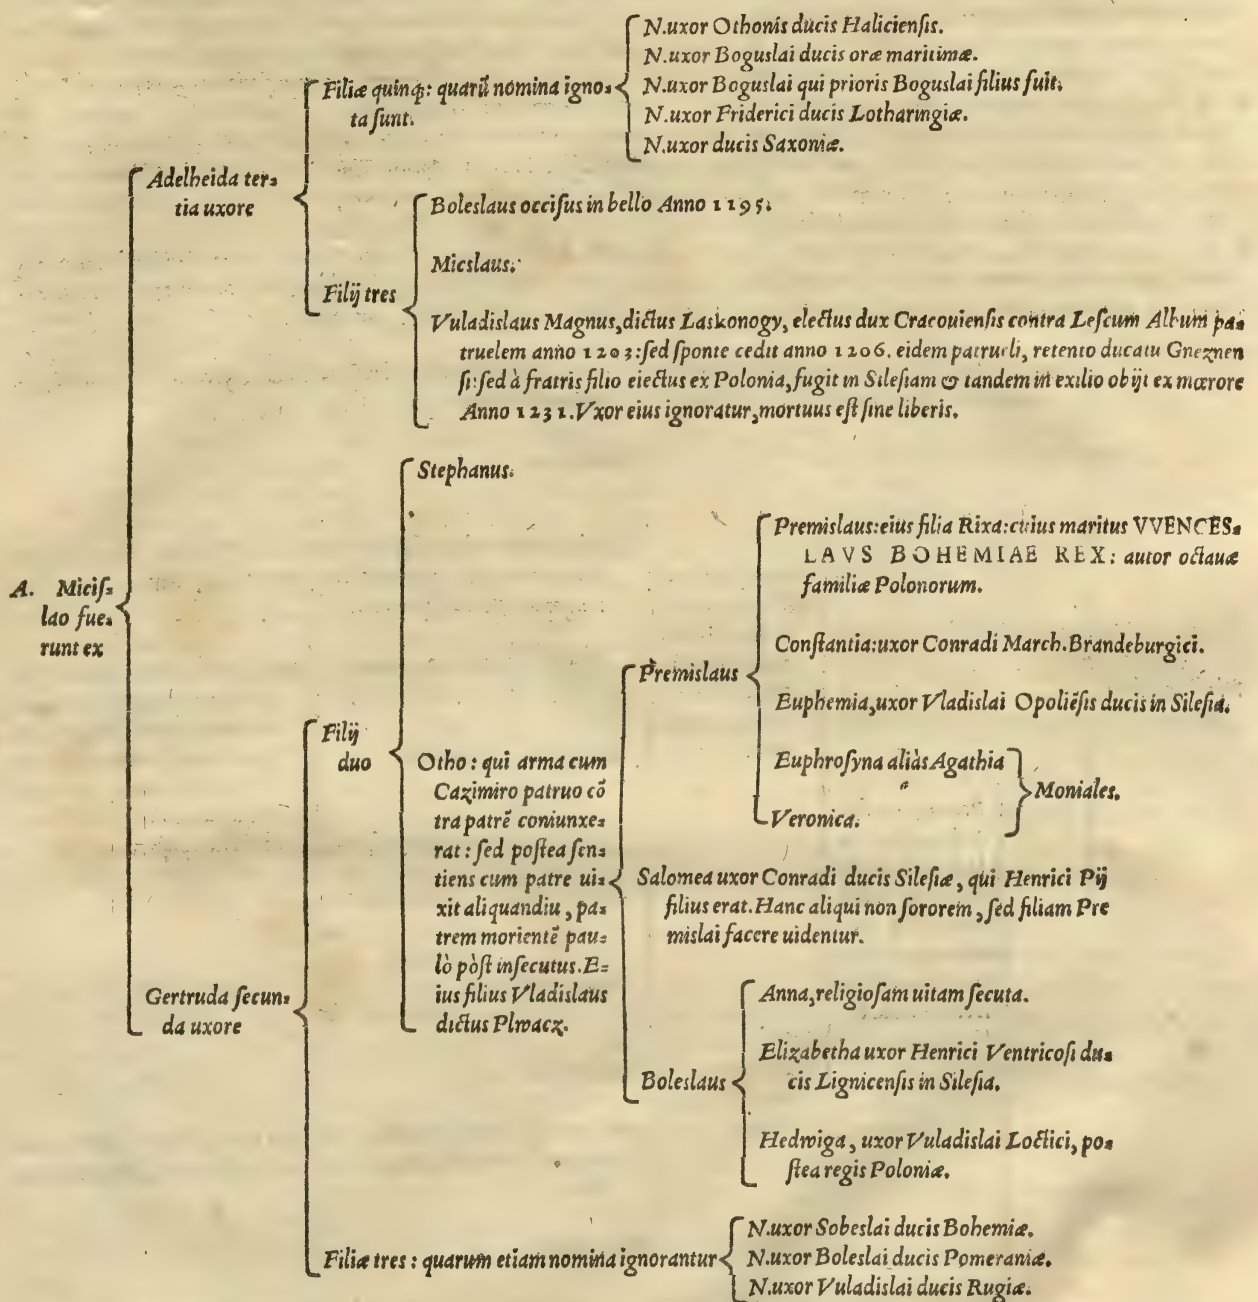 N.uxor Othonis ducis Haliciensis.
N.uxor Boguslai ducis oræ maritimæ.
Filiæ quinq;: quarũ nomina igno⸗
ta sunt.
N.uxor Boguslai qui prioris Boguslai filius fuit.
N.uxor Friderici ducis Lotharingiæ.
N.uxor ducis Saxoniæ.
Adelheida ter⸗
tia uxore
Boleslaus occisus in bello Anno 1195.
Micslaus.
Filij tres
Vuladislaus Magnus, dictus Laskonogy, electus dux Cracouiensis contra Lescum Album pa⸗
truelem anno 1203: sed sponte cedit anno 1206. eidem patrueli, retento ducatu Gneznen
si: sed à fratris filio eiectus ex Polonia, fugit in Silesiam & tandem in exilio obijt ex mœrore
Anno 1231. Vxor eius ignoratur, mortuus est sine liberis.
A. Micis⸗
lao fue⸗
runt ex
Gertruda secun⸗
da uxore
Filij
duo
Stephanus.
Otho: qui arma cum
Cazimiro patruo cõ
tra patrẽ coniunxe⸗
rat: sed postea sen⸗
tiens cum patre ui⸗
xit aliquandiu, pa⸗
trem morientẽ pau⸗
lò pòst insecutus. E⸗
ius filius Vladislaus
dictus Plwacz.
Premislaus
Premislaus: eius filia Rixa: cuius maritus VVENCES⸗
LAVS BOHEMIAE REX: autor octauæ
familiæ Polonorum.
Constantia: uxor Conradi March. Brandeburgici.
Euphemia, uxor Vladislai Opoliẽsis ducis in Silesia.
Euphrosyna aliàs Agathia
Veronica.
Moniales.
Salomea uxor Conradi ducis Silesiæ, qui Henrici Pij
filius erat. Hanc aliqui non sororem, sed filiam Pre
mislai facere uidentur.
Boleslaus
Anna, religiosam uitam secuta.
Elizabetha uxor Henrici Ventricosi du⸗
cis Lignicensis in Silesia.
Hedwiga, uxor Vuladislai Loctici, po⸗
stea regis Poloniæ.
Filiæ tres: quarum etiam nomina ignorantur
N.uxor Sobeslai ducis Bohemiæ.
N.uxor Boleslai ducis Pomeraniæ.
N.uxor Vuladislai ducis Rugiæ.